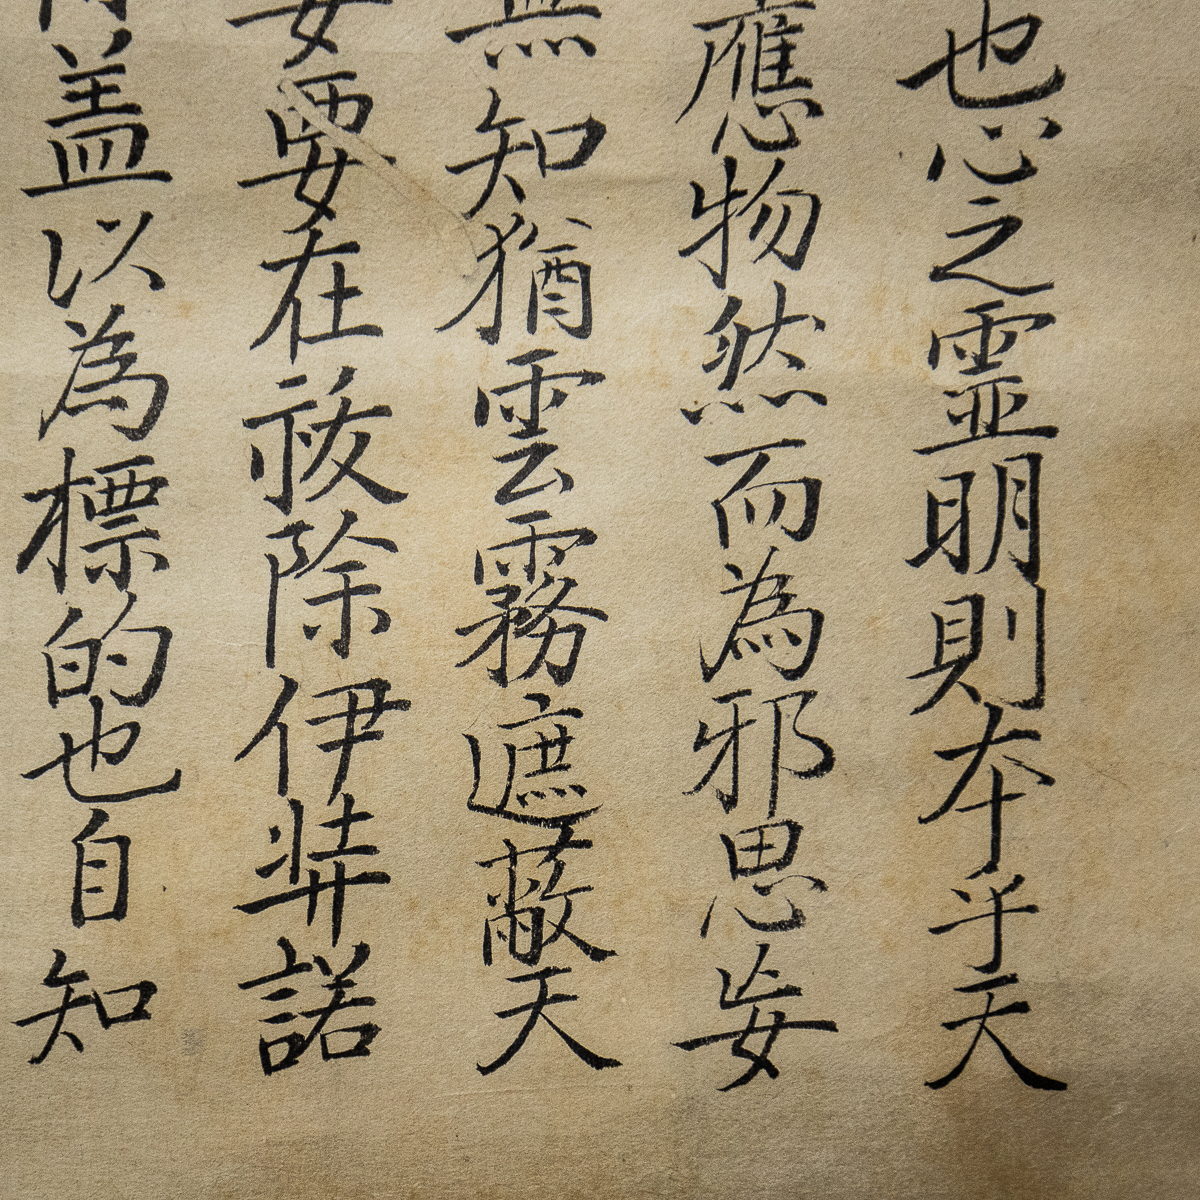 也心之靈明則本乎天
應物然而為邪思妄
無知猶雲霧遮蔽天
要在祓除伊弉諾
盖以為標的也自知